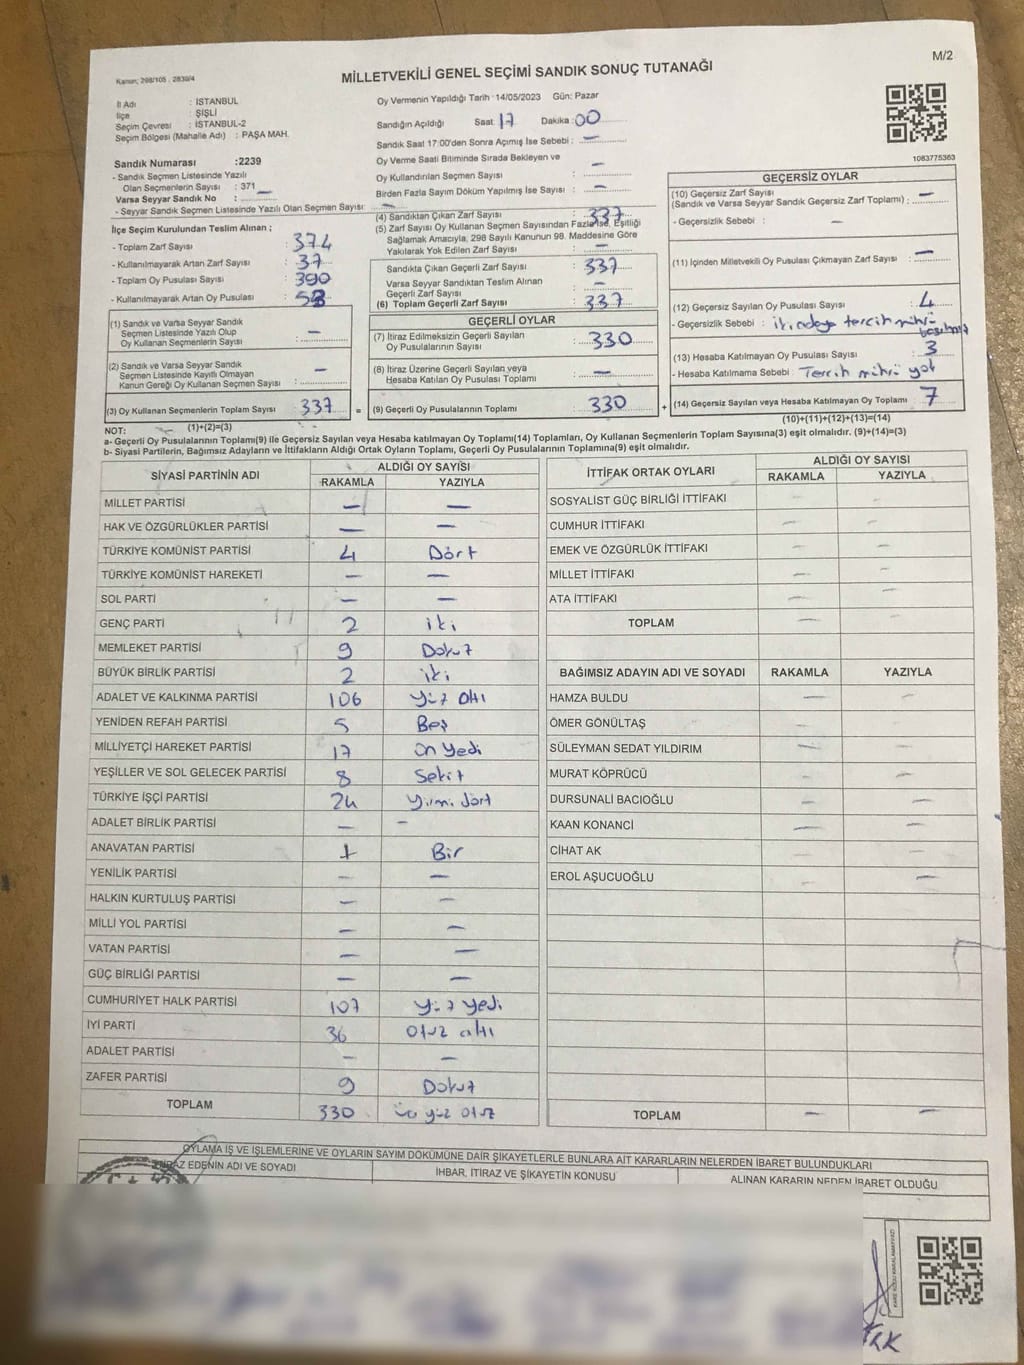 M/2
Kanun; 298/105 : 2839/4
MİLLETVEKİLİ GENEL SEÇİMİ SANDIK SONUÇ TUTANAĞI
İl Adı : İSTANBUL
İlçe : ŞİŞLİ
Seçim Çevresi : İSTANBUL-2
Seçim Bölgesi (Mahalle Adı) : PAŞA MAH.
Sandık Numarası :2239
- Sandık Seçmen Listesinde Yazılı
Olan Seçmenlerin Sayısı : 371
Varsa Seyyar Sandık No : —
- Seyyar Sandık Seçmen Listesinde Yazılı Olan Seçmen Sayısı: —
İlçe Seçim Kurulundan Teslim Alınan ;
- Toplam Zarf Sayısı : 374
- Kullanılmayarak Artan Zarf Sayısı : 37
- Toplam Oy Pusulası Sayısı : 390
- Kullanılmayarak Artan Oy Pusulası :
(1) Sandık ve Varsa Seyyar Sandık
Seçmen Listesinde Yazılı Olup
Oy Kullanan Seçmenlerin Sayısı : —
(2) Sandık ve Varsa Seyyar Sandık
Seçmen Listesinde Kayıtlı Olmayan
Kanun Gereği Oy Kullanan Seçmen Sayısı : —
(3) Oy Kullanan Seçmenlerin Toplam Sayısı : 337 =
Oy Vermenin Yapıldığı Tarih :14/05/2023 Gün: Pazar
Sandığın Açıldığı Saat: 17 Dakika: 00
Sandık Saat 17:00'den Sonra Açımış İse Sebebi : —
Oy Verme Saati Bitiminde Sırada Bekleyen ve
Oy Kullandırılan Seçmen Sayısı : —
Birden Fazla Sayım Döküm Yapılmış İse Sayısı : —
(4) Sandıktan Çıkan Zarf Sayısı : 337
(5) Zarf Sayısı Oy Kullanan Seçmen Sayısından Fazla İse, Eşitliği
Sağlamak Amacıyla, 298 Sayılı Kanunun 98. Maddesine Göre
Yakılarak Yok Edilen Zarf Sayısı : —
Sandıkta Çıkan Geçerli Zarf Sayısı : 337
Varsa Seyyar Sandıktan Teslim Alınan
Geçerli Zarf Sayısı : —
(6) Toplam Geçerli Zarf Sayısı : 337
GEÇERLİ OYLAR
(7) İtiraz Edilmeksizin Geçerli Sayılan
Oy Pusulalarının Sayısı : 330
(8) İtiraz Üzerine Geçerli Sayılan veya
Hesaba Katılan Oy Pusulası Toplamı : —
(9) Geçerli Oy Pusulalarının Toplamı : 330 +
1083775363
GEÇERSİZ OYLAR
(10) Geçersiz Zarf Sayısı
(Sandık ve Varsa Seyyar Sandık Geçersiz Zarf Toplamı) : —
- Geçersizlik Sebebi : —
(11) İçinden Milletvekili Oy Pusulası Çıkmayan Zarf Sayısı : —
(12) Geçersiz Sayılan Oy Pusulası Sayısı : 4
- Geçersizlik Sebebi : tercih mührü
(13) Hesaba Katılmayan Oy Pusulası Sayısı : 3
- Hesaba Katılmama Sebebi : Tercih mührü yok
(14) Geçersiz Sayılan veya Hesaba Katılmayan Oy Toplamı : 7
NOT: (1)+(2)=(3) (10)+(11)+(12)+(13)=(14)
a- Geçerli Oy Pusulalarının Toplamı(9) ile Geçersiz Sayılan veya Hesaba katılmayan Oy Toplamı(14) Toplamları, Oy Kullanan Seçmenlerin Toplam Sayısına(3) eşit olmalıdır. (9)+(14)=(3)
b- Siyasi Partilerin, Bağımsız Adayların ve İttifakların Aldığı Ortak Oyların Toplamı, Geçerli Oy Pusulalarının Toplamına(9) eşit olmalıdır.
SİYASİ PARTİNİN ADI ALDIĞI OY SAYISI
RAKAMLA YAZIYLA
MİLLET PARTİSİ — —
HAK VE ÖZGÜRLÜKLER PARTİSİ — —
TÜRKİYE KOMÜNİST PARTİSİ 4 Dört
TÜRKİYE KOMÜNİST HAREKETİ — —
SOL PARTİ — —
GENÇ PARTİ 2 iki
MEMLEKET PARTİSİ 9 Dokuz
BÜYÜK BİRLİK PARTİSİ 2 iki
ADALET VE KALKINMA PARTİSİ 106 Yüz Altı
YENİDEN REFAH PARTİSİ 5 Beş
MİLLİYETÇİ HAREKET PARTİSİ 17 On Yedi
YEŞİLLER VE SOL GELECEK PARTİSİ 8 Sekiz
TÜRKİYE İŞÇİ PARTİSİ 24 Yirmi dört
ADALET BİRLİK PARTİSİ — —
ANAVATAN PARTİSİ 1 Bir
YENİLİK PARTİSİ — —
HALKIN KURTULUŞ PARTİSİ — —
MİLLİ YOL PARTİSİ — —
VATAN PARTİSİ — —
GÜÇ BİRLİĞİ PARTİSİ — —
CUMHURİYET HALK PARTİSİ 107 Yüz Yedi
İYİ PARTİ 36 Otuz altı
ADALET PARTİSİ — —
ZAFER PARTİSİ 9 Dokuz
TOPLAM 330 üç yüz otuz
İTTİFAK ORTAK OYLARI ALDIĞI OY SAYISI
RAKAMLA YAZIYLA
SOSYALİST GÜÇ BİRLİĞİ İTTİFAKI — —
CUMHUR İTTİFAKI — —
EMEK VE ÖZGÜRLÜK İTTİFAKI — —
MİLLET İTTİFAKI — —
ATA İTTİFAKI — —
TOPLAM — —
BAĞIMSIZ ADAYIN ADI VE SOYADI RAKAMLA YAZIYLA
HAMZA BULDU — —
ÖMER GÖNÜLTAŞ — —
SÜLEYMAN SEDAT YILDIRIM — —
MURAT KÖPRÜCÜ — —
DURSUNALİ BACIOĞLU — —
KAAN KONANCİ — —
CİHAT AK — —
EROL AŞUCUOĞLU — —
TOPLAM — —
OYLAMA İŞ VE İŞLEMLERİNE VE OYLARIN SAYIM DÖKÜMÜNE DAİR ŞİKAYETLERLE BUNLARA AİT KARARLARIN NELERDEN İBARET BULUNDUKLARI
EDENİN ADI VE SOYADI İHBAR, İTİRAZ VE ŞİKAYETİN KONUSU ALINAN KARARIN NEDEN İBARET OLDUĞU